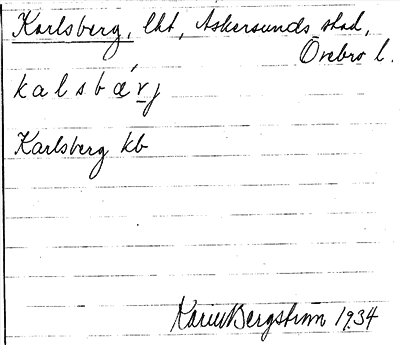 Karlsberg, lht, Askersunds stad,
Örebro l.
kalsbǽrj
Karlsberg kb
Karin Bergström 1934